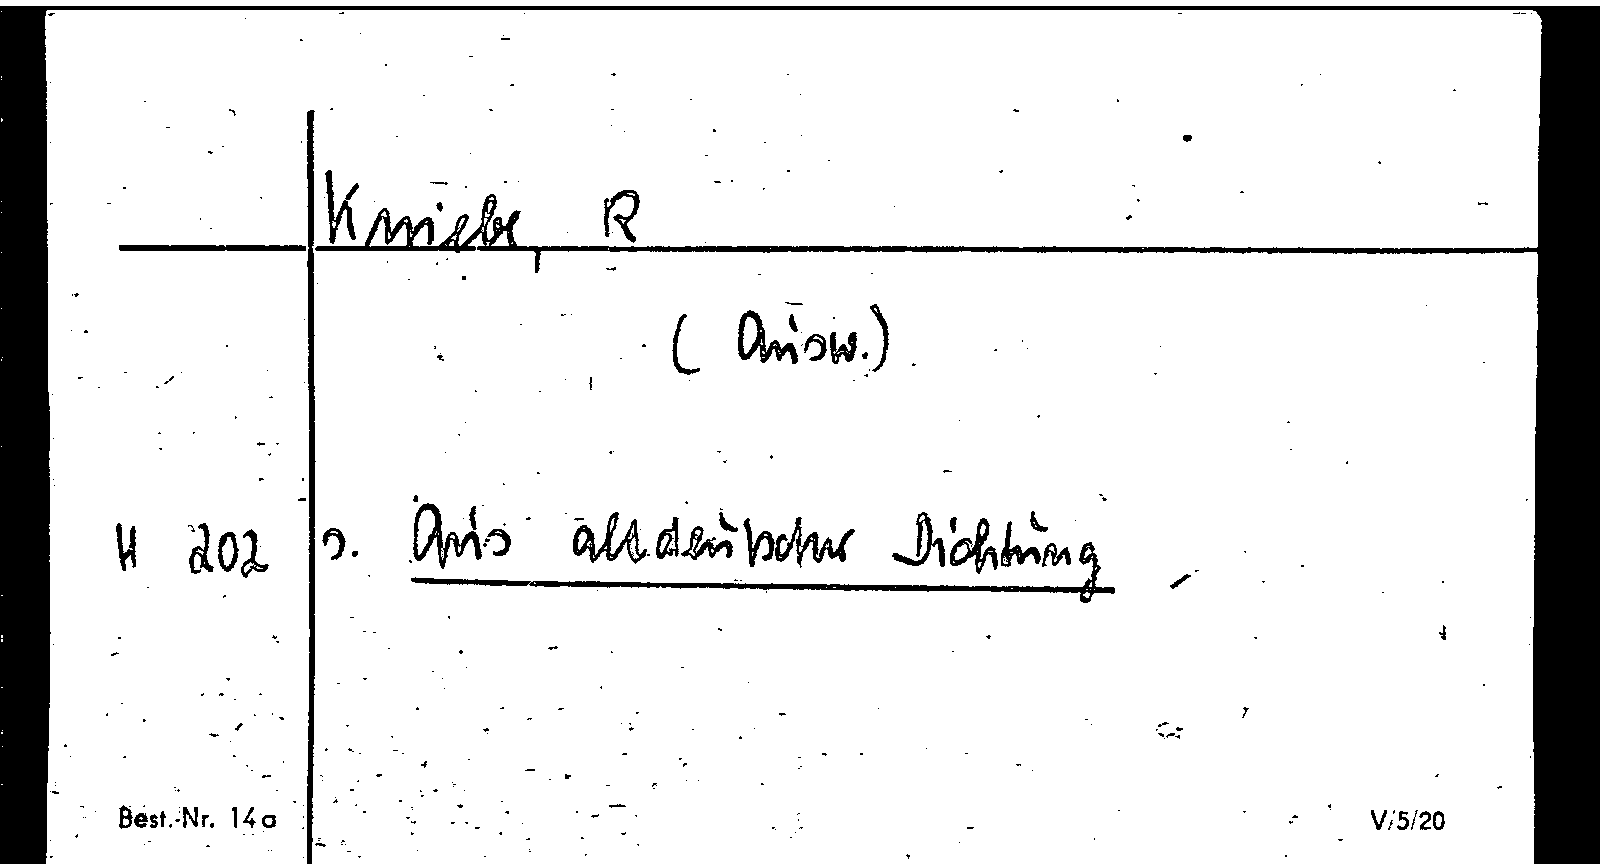 Kniebe, R
(Ausw.)
H 202 s. Aus altdeutscher Dichtung
Best.-Nr. 14a V/5/20